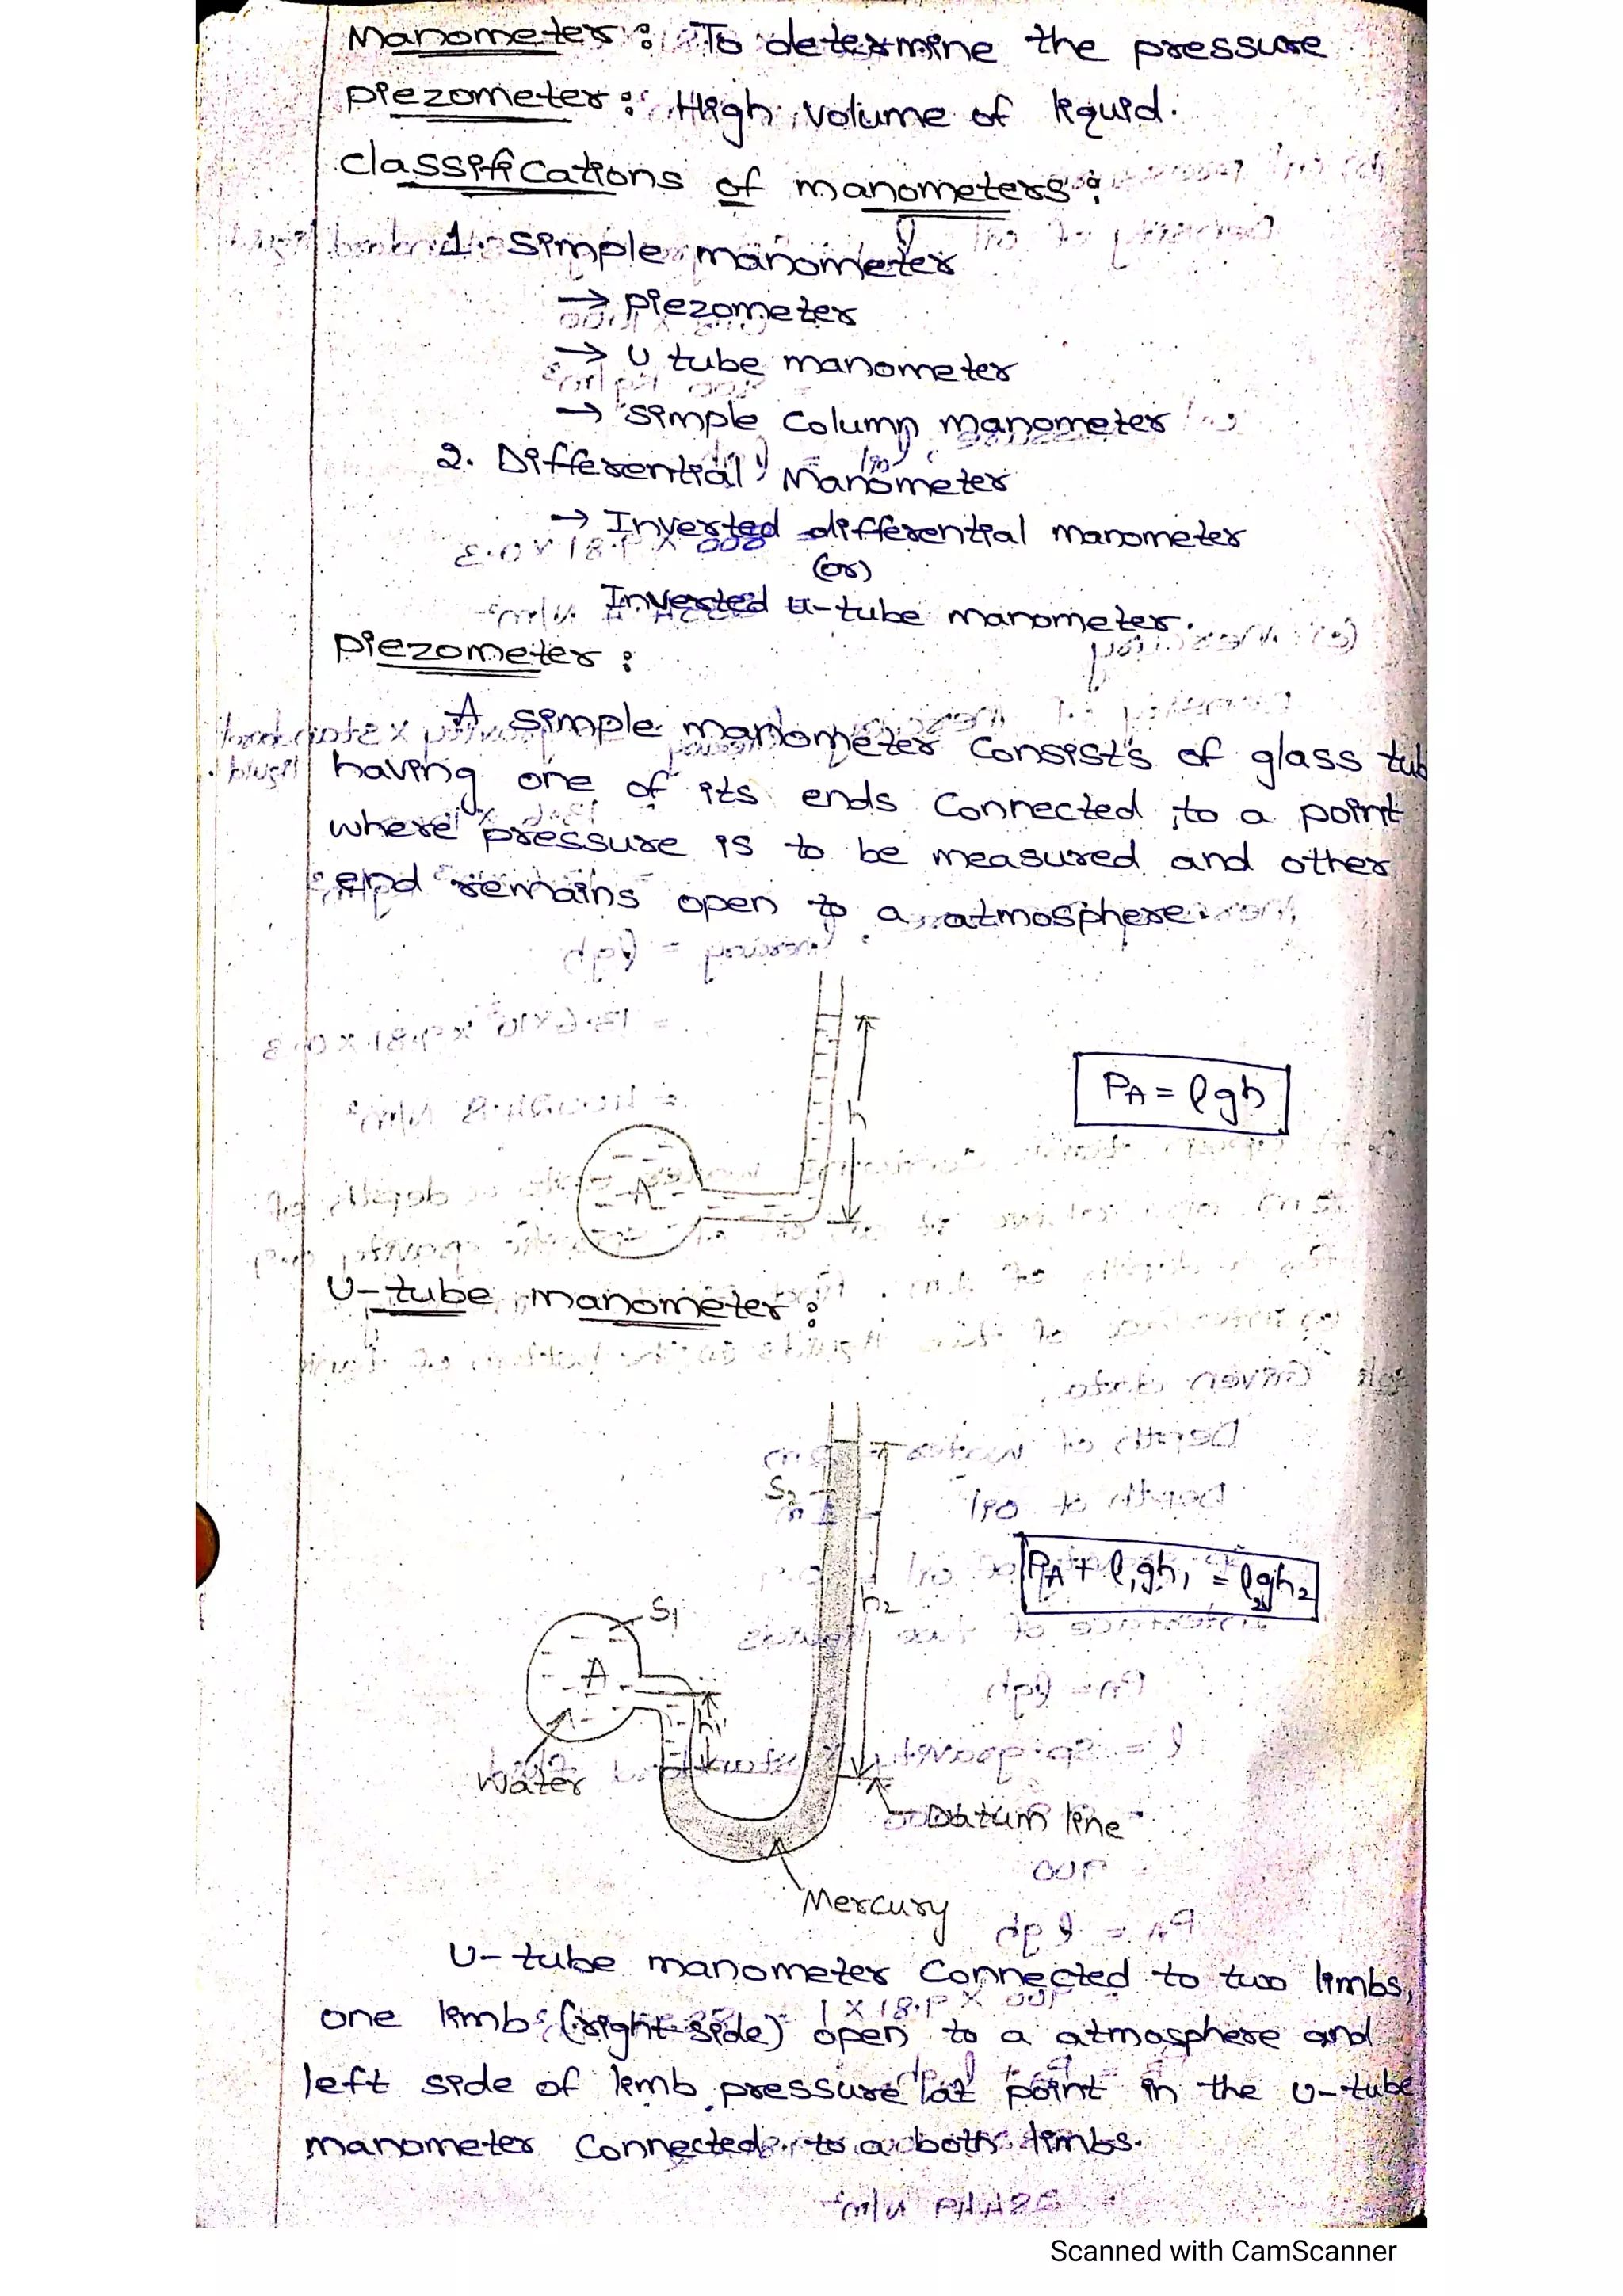 Manometer : To determine the pressure
piezometer : High volume of liquid.
classifications of manometers :
1. Simple manometer
→ piezometer
→ U tube manometer
→ simple column manometer
2. Differential Manometer
→ Inverted differential manometer
(or)
Inverted u-tube manometer.
piezometer :
A simple manometer consists of glass tub
having one of its ends connected to a point
where pressure is to be measured and other
end remains open to a atmosphere.
h
PA = ρgh
A
U-tube manometer :
S2
PA + ρ1gh1 = ρ2gh2
h2
S1
A
h1
Water
Datum line
Mercury
U-tube manometer connected to two limbs,
one limb (right side) open to a atmosphere and
left side of limb pressure at point in the u-tube
manometer connected to a both limbs.
Scanned with CamScanner